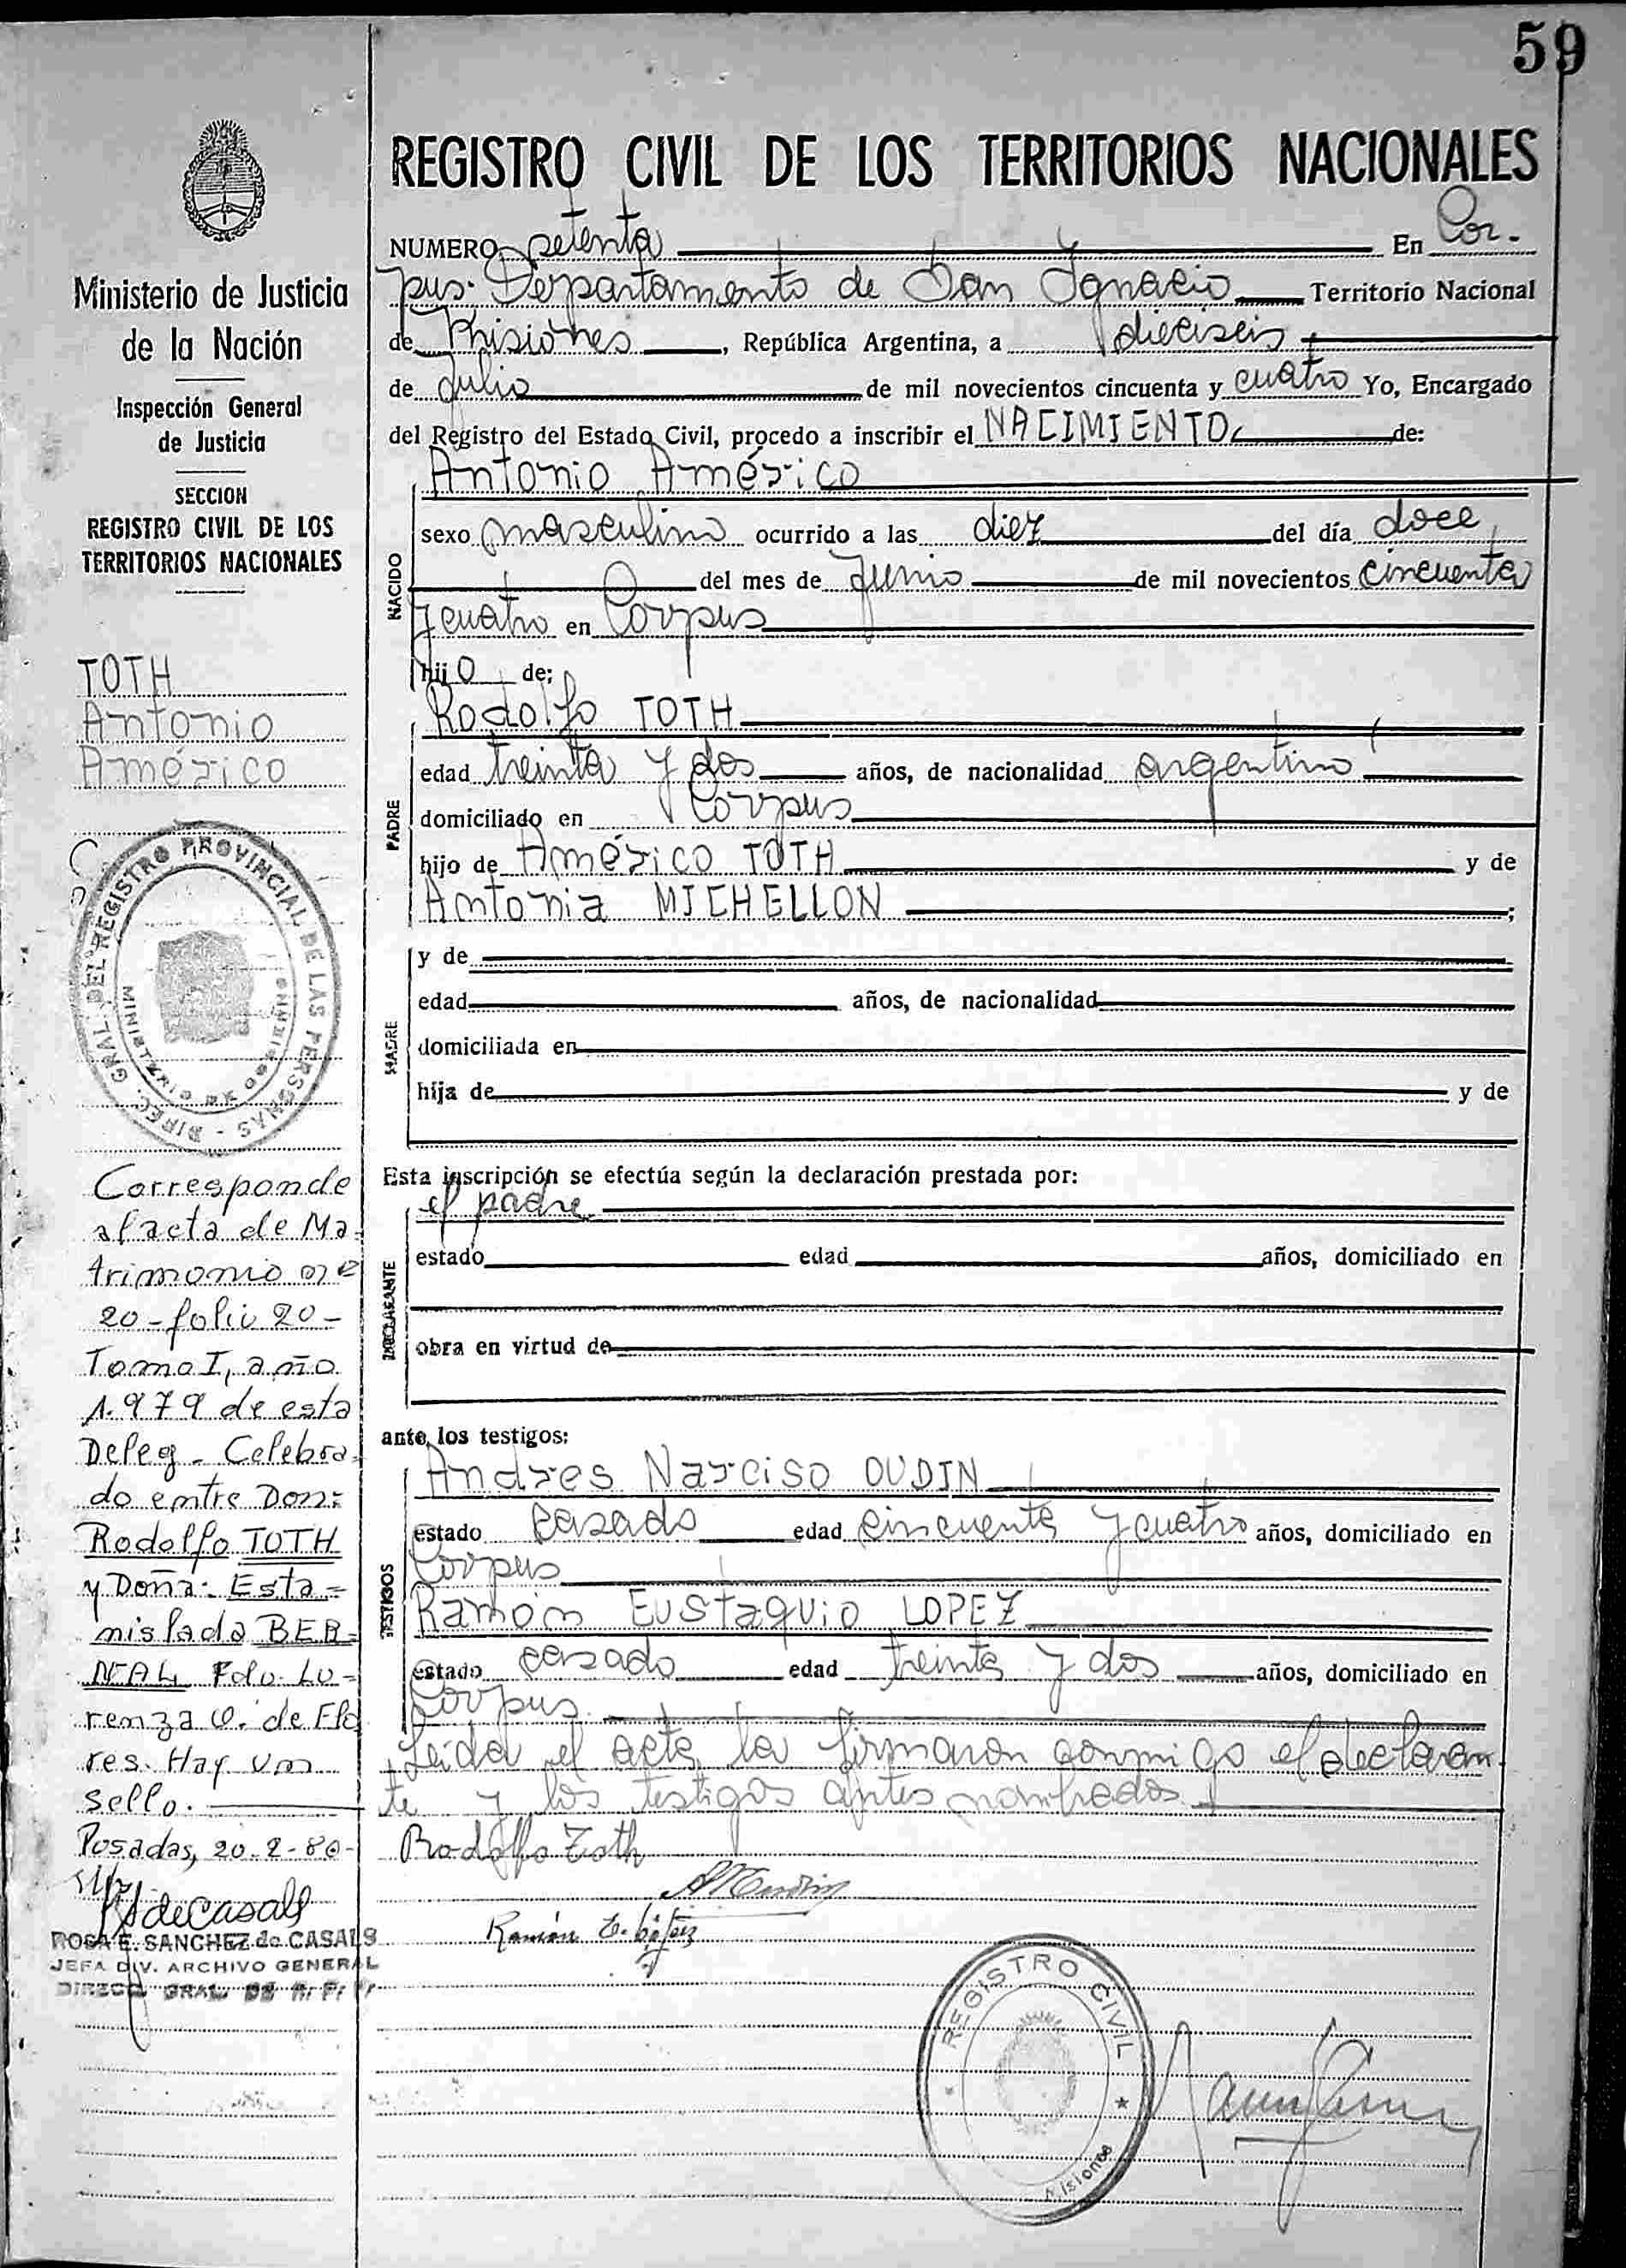 59
REGISTRO CIVIL DE LOS TERRITORIOS NACIONALES
NUMERO setenta En Cor-
pus. Departamento de San Ignacio Territorio Nacional
de Misiones, República Argentina, a dieciseis
de Julio de mil novecientos cincuenta y cuatro Yo, Encargado
del Registro del Estado Civil, procedo a inscribir el NACIMIENTO de:
NACIDO
Antonio Américo
sexo masculino ocurrido a las diez del día doce
del mes de Junio de mil novecientos cincuenta
y cuatro en Corpus
hijo de;
PADRE
Rodolfo TOTH
edad treinta y dos años, de nacionalidad argentino
domiciliado en Corpus
hijo de Américo TOTH y de
Antonia MICHELLON ;
MADRE
y de
edad años, de nacionalidad
domiciliada en
hija de y de
Esta inscripción se efectúa según la declaración prestada por:
DECLARANTE
el padre
estado edad años, domiciliado en
obra en virtud de
ante los testigos:
TESTIGOS
Andres Narciso OUDIN
estado casado edad cincuenta y cuatro años, domiciliado en
Corpus
Ramón Eustaquio LOPEZ
estado casado edad treinta y dos años, domiciliado en
Corpus.
Leída el acta, la firmaron conmigo el declaran-
te y los testigos antes nombrados
Rodolfo Toth
Ramón E. López
REGISTRO CIVIL
Misiones
Ministerio de Justicia
de la Nación
Inspección General
de Justicia
SECCION
REGISTRO CIVIL DE LOS
TERRITORIOS NACIONALES
TOTH
Antonio
Américo
DIREC. GRAL. DEL REGISTRO PROVINCIAL DE LAS PERSONAS
MINISTERIO DE GOBIERNO
Corresponde
al acta de Ma-
trimonio nº
20-folio 20-
Tomo I, año
1.979 de esta
Deleg. Celebra-
do entre Don:
Rodolfo TOTH
y Doña: Esta=
nislada BER=
NAL Fdo. Lo-
renza O. de Flo
res. Hay un
sello.
Posadas, 20-2-80-
ROSA E. SANCHEZ de CASALS
JEFA DIV. ARCHIVO GENERAL
DIRECC. GRAL. DE R. P. P.